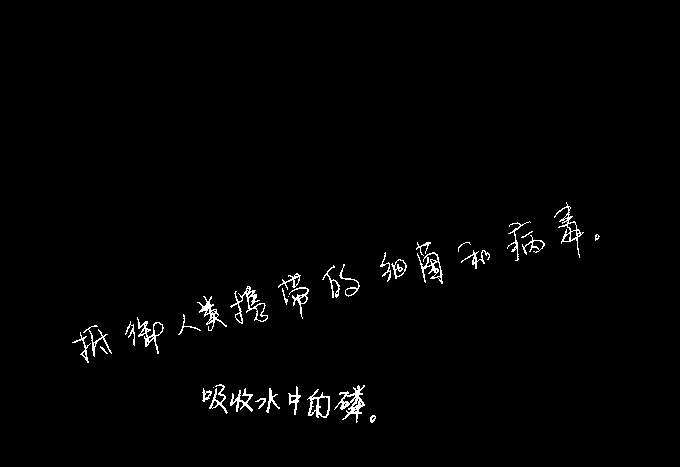 抵御人类携带的细菌和病毒。
吸收水中的磷。